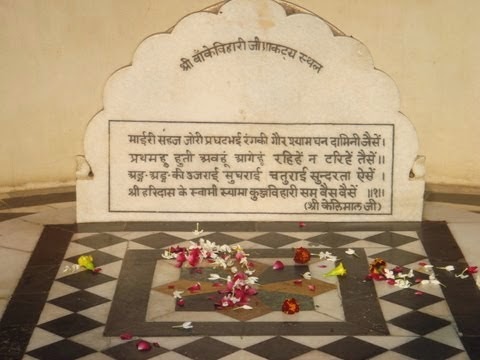 श्री बाँकेविहारी जी प्राकट्य स्थल
माईरी सहज जोरी प्रघटभई रंगकी गौर श्याम घन दामिनी जैसें।
प्रथमहु हुती अवहूं आगेहूं रहिहें न टरिहें तैसें॥
अङ्ग-अङ्ग-की उजराई सुघराई चतुराई सुन्दरता ऐसें।
श्री हरिदास के स्वामी स्यामा कुञ्जविहारी सम वैस वैसें ॥१॥
(श्री केलिमाल जी)